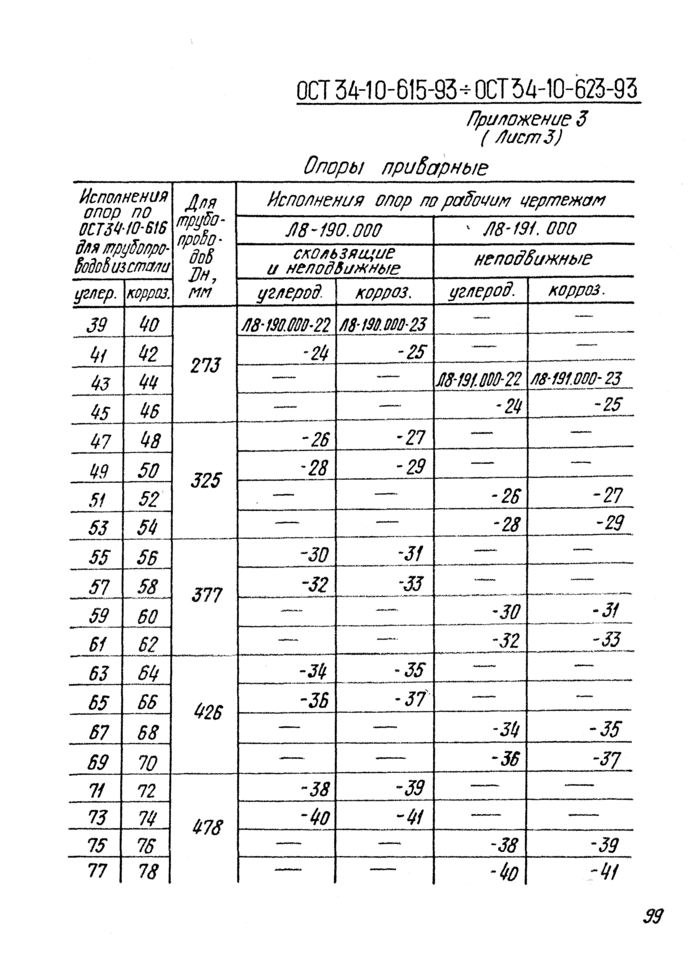 ОСТ 34-10-615-93÷ОСТ 34-10-623-93
Приложение 3
(Лист 3)
Опоры приварные
Исполнения опор по ОСТ34-10-616 для трубопро- водов из стали | Для трубо- прово- дов Dн, мм | Исполнения опор по рабочим чертежам
Л8-190.000 | Л8-191.000
скользящие и неподвижные | неподвижные
углер. | корроз. | углерод. | корроз. | углерод. | корроз.
39 | 40 | 273 | Л8-190.000-22 | Л8-190.000-23 | — | —
41 | 42 | -24 | -25 | — | —
43 | 44 | — | — | Л8-191.000-22 | Л8-191.000-23
45 | 46 | — | — | -24 | -25
47 | 48 | 325 | -26 | -27 | — | —
49 | 50 | -28 | -29 | — | —
51 | 52 | — | — | -26 | -27
53 | 54 | — | — | -28 | -29
55 | 56 | 377 | -30 | -31 | — | —
57 | 58 | -32 | -33 | — | —
59 | 60 | — | — | -30 | -31
61 | 62 | — | — | -32 | -33
63 | 64 | 426 | -34 | -35 | — | —
65 | 66 | -36 | -37 | — | —
67 | 68 | — | — | -34 | -35
69 | 70 | — | — | -36 | -37
71 | 72 | 478 | -38 | -39 | — | —
73 | 74 | -40 | -41 | — | —
75 | 76 | — | — | -38 | -39
77 | 78 | — | — | -40 | -41
99